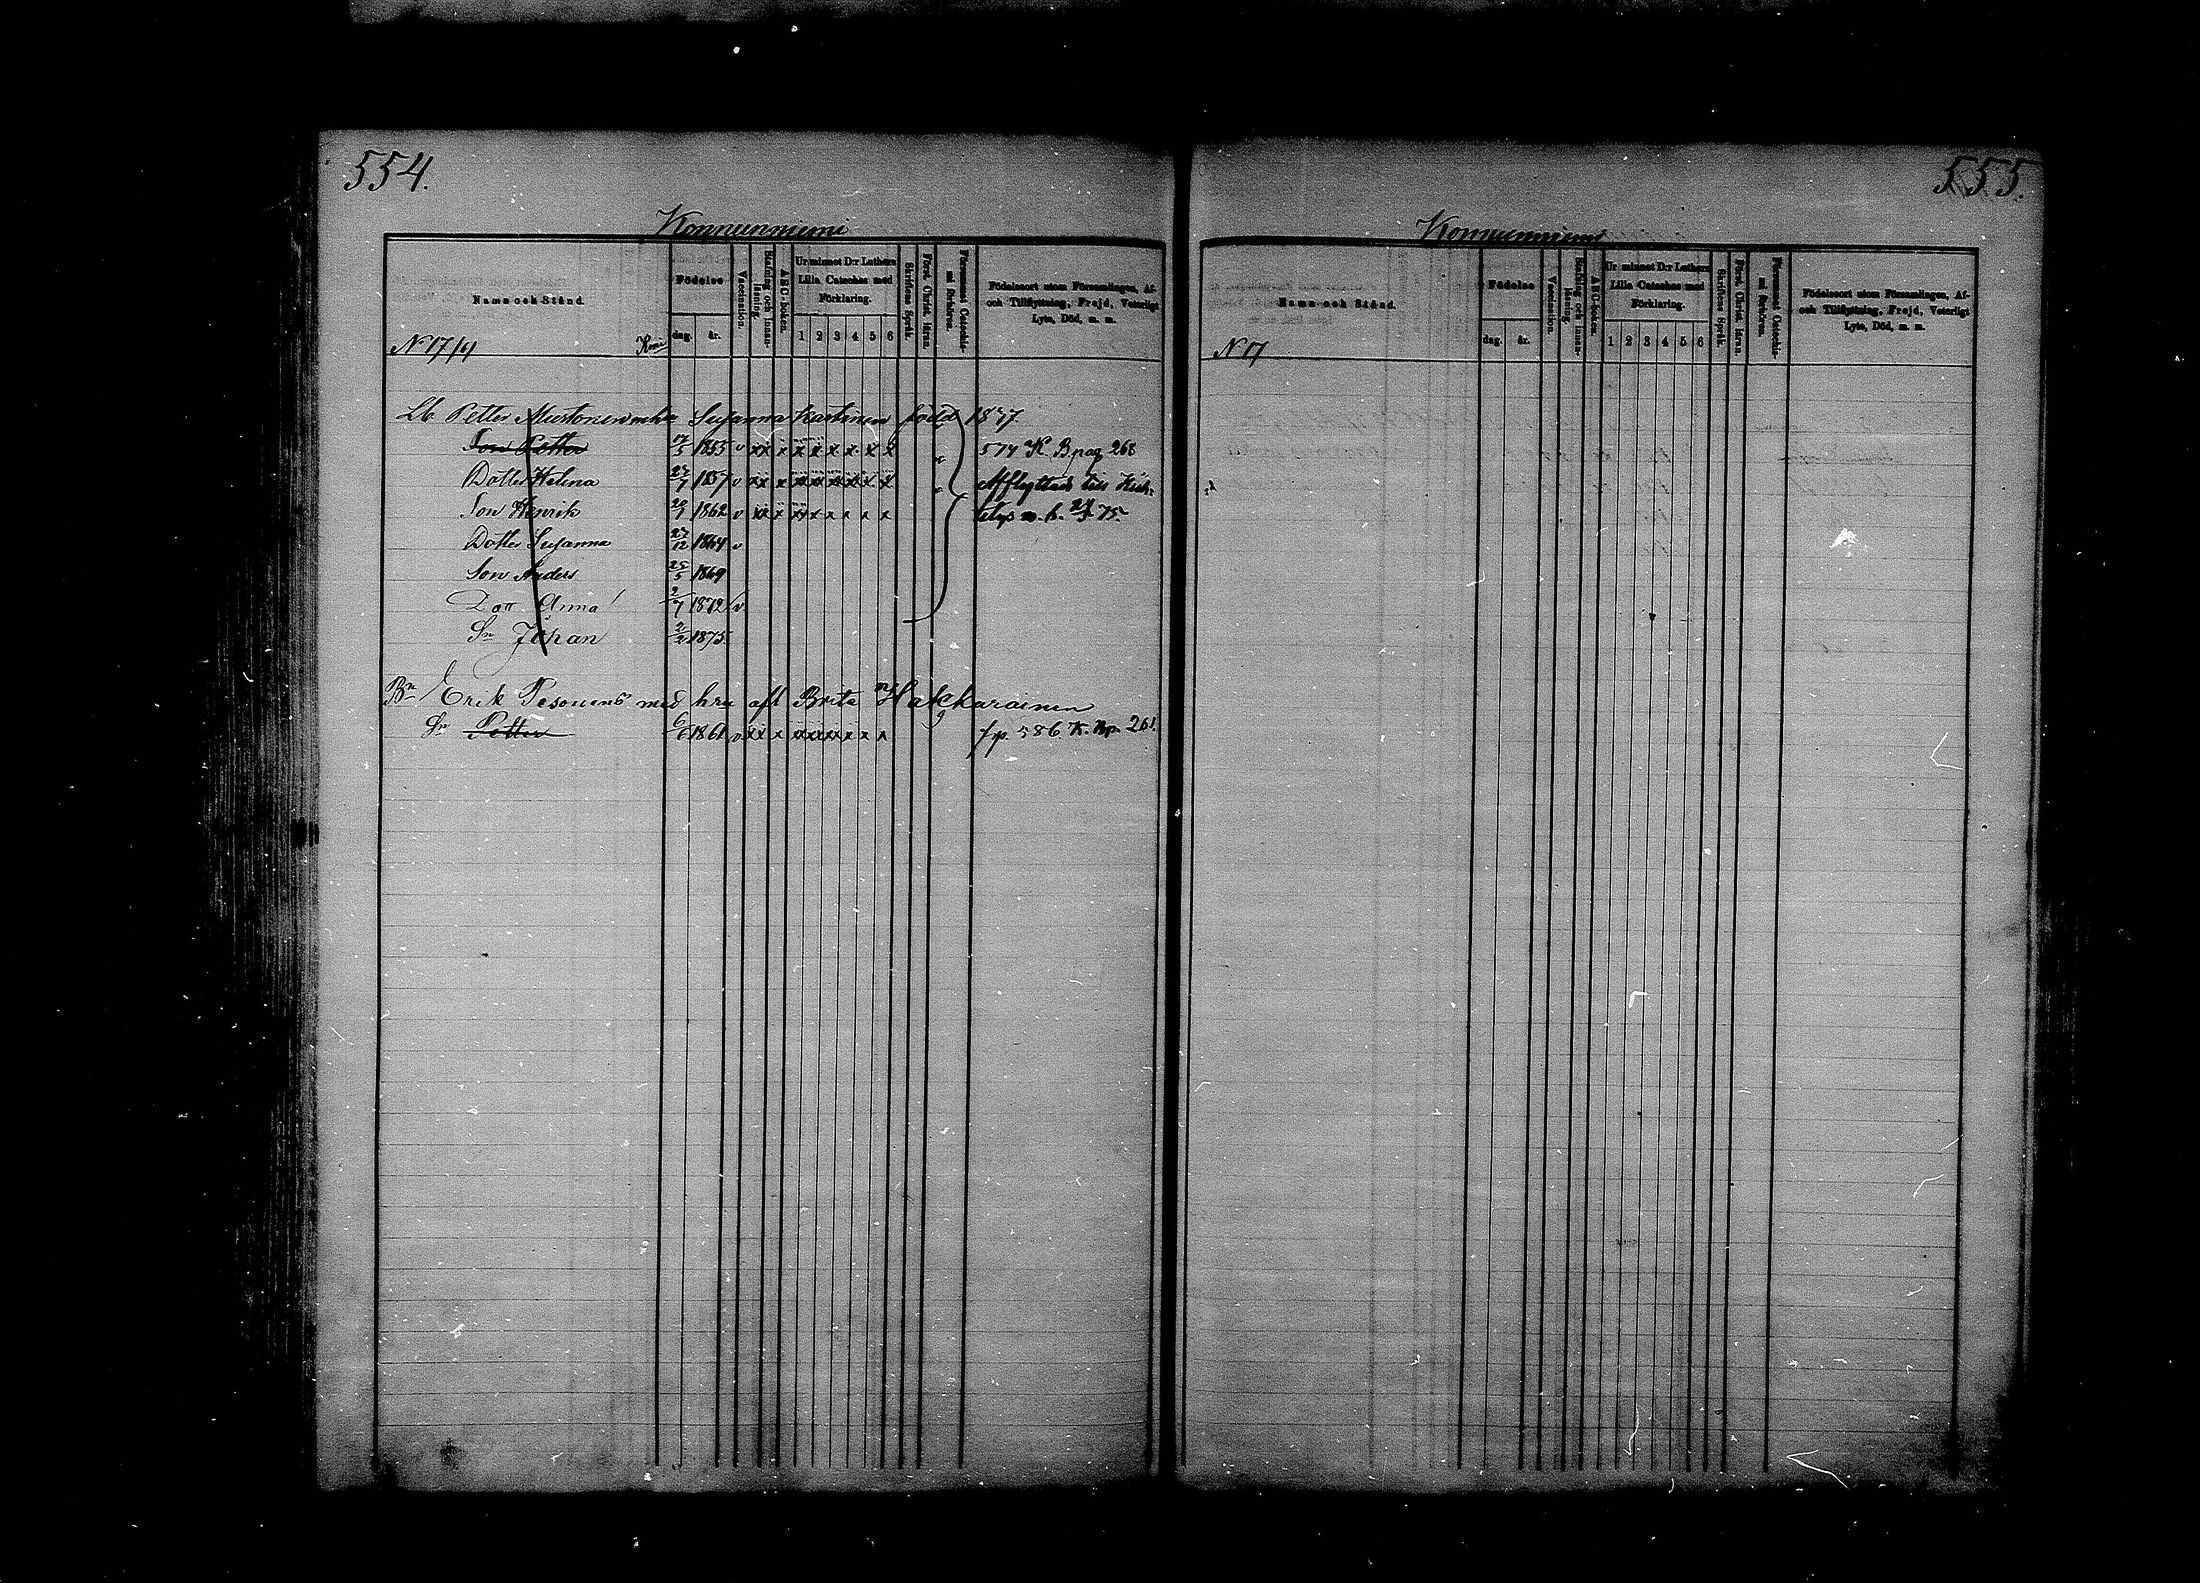 554.
Konnunniemi
Namn och Stånd.
Födelse
dag. år.
Vaccination.
Stafning och Innan-läsning.
A B C-boken.
Ur minnet D:r Luthers Lilla Cateches med Förklaring.
1 2 3 4 5 6
Skriftens Språk.
Först. Christ. läran.
Försummat Catechismi förhören.
Födelseort utom Församlingen, Af- och Tillflyttning, Frejd, Veterligt Lyte, Död, m. m.
N 17
Petter Susanna född 1877.
Son Petter 17/5 1855 v xx x x x x x x x 574 K. B. pag 268
Dotter Helena 27/7 1857 v xx x xx xx xx xx x x Afflyttad till
Son Henrik 20/1 1862 v xx x xx x x x x x m. h. 75.
Dotter Susanna 27/12 1864 v
Son Anders 25/5 1869
Dott Anna 2/7 1872 v.
Sn Johan 2/2 1875
Bn Erik Pesonens med hru afl Brita Hakkarainen
Sn Petter 6/6 1861 v xx x xx xx xx x x x f p. 586 K. Bp. 261.
555.
Konnunniemi
Namn och Stånd.
Födelse
dag. år.
Vaccination.
Stafning och Innan-läsning.
A B C-boken.
Ur minnet D:r Luthers Lilla Cateches med Förklaring.
1 2 3 4 5 6
Skriftens Språk.
Först. Christ. läran.
Försummat Catechismi förhören.
Födelseort utom Församlingen, Af- och Tillflyttning, Frejd, Veterligt Lyte, Död, m. m.
N 17